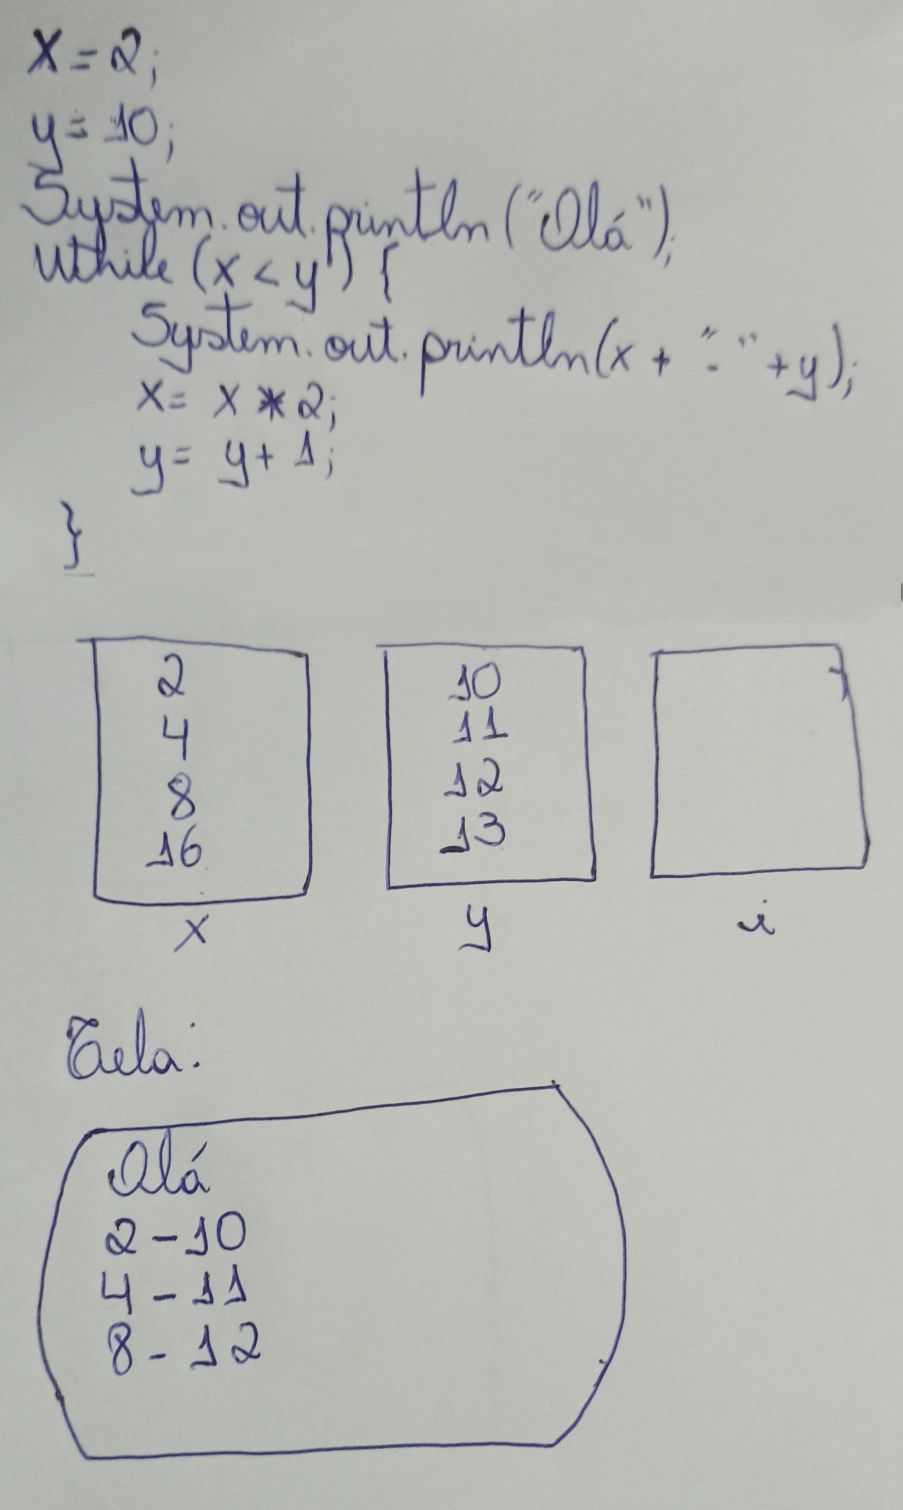 x = 2;
y = 10;
System.out.println("Olá");
While (x < y) {
System.out.println(x + "-" + y);
x = x * 2;
y = y + 1;
}
2
4
8
16
x
10
11
12
13
y
i
Tela:
Olá
2 - 10
4 - 11
8 - 12